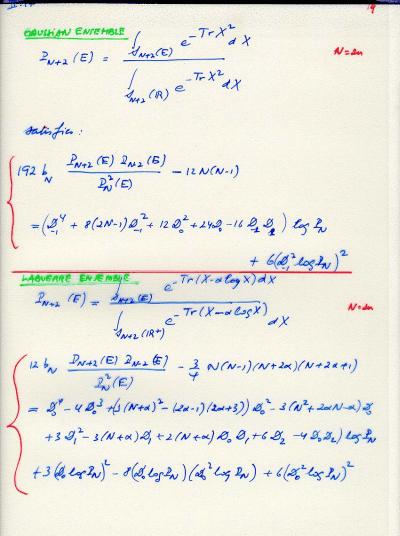 GAUSSIAN ENSEMBLE
P_{N+2}(E) = ∫_{S_{N+2}(E)} e^{-Tr X²} dX / ∫_{S_{N+2}(ℝ)} e^{-Tr X²} dX N=2n
satisfies:
192 b_N P_{N+2}(E) P_{N-2}(E) / P_N²(E) - 12N(N-1)
= (D_{-1}^4 + 8(2N-1)D_{-1}^2 + 12D_0^2 + 24D_0 - 16D_{-1}D_1) log P_N
+ 6(D_{-1}^2 log P_N)²
LAGUERRE ENSEMBLE
P_{N+2}(E) = ∫_{S_{N+2}(E)} e^{-Tr(X-α log X)} dX / ∫_{S_{N+2}(ℝ⁺)} e^{-Tr(X-α log X)} dX N=2n
12 b_N P_{N+2}(E) P_{N-2}(E) / P_N²(E) - 3/4 N(N-1)(N+2α)(N+2α+1)
= D_0^4 - 4D_0^3 + (3(N+α)² - (2α-1)(2α+3)) D_0^2 - 3(N²+2αN-α) D_0
+3D_1^2 - 3(N+α)D_1 + 2(N+α)D_0D_1 + 6D_2 - 4D_0D_2) log P_N
+3(D_0 log P_N)² - 8(D_0 log P_N)(D_0^2 log P_N) + 6(D_0^2 log P_N)²